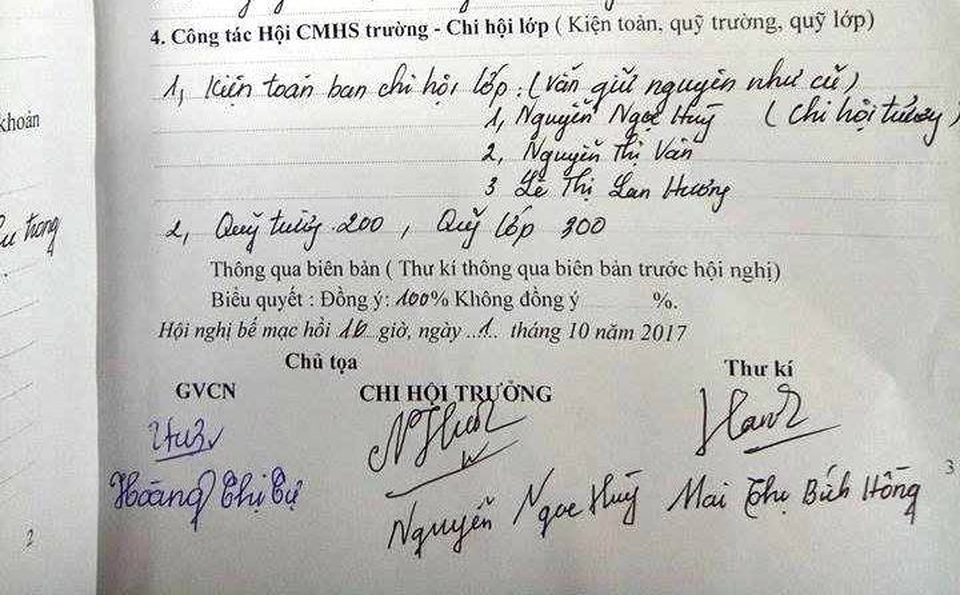 4. Công tác Hội CMHS trường - Chi hội lớp ( Kiện toàn, quỹ trường, quỹ lớp)
1, Kiện toàn ban chi hội lớp: (Vẫn giữ nguyên như cũ)
1, Nguyễn Ngọc Huỳ (Chi hội trưởng)
2, Nguyễn Thị Vân
3 Lê Thị Lan Hương
khoản
2, Quỹ trường 200, Quỹ lớp 300
trong
Thông qua biên bản ( Thư kí thông qua biên bản trước hội nghị)
Biểu quyết : Đồng ý: 100% Không đồng ý %.
Hội nghị bế mạc hồi 10 giờ, ngày 1 tháng 10 năm 2017
Chủ tọa
Thư kí
GVCN
CHI HỘI TRƯỞNG
Hoàng Thị Cự
Nguyễn Ngọc Huỳ
Mai Thị Bích Hồng
3
2